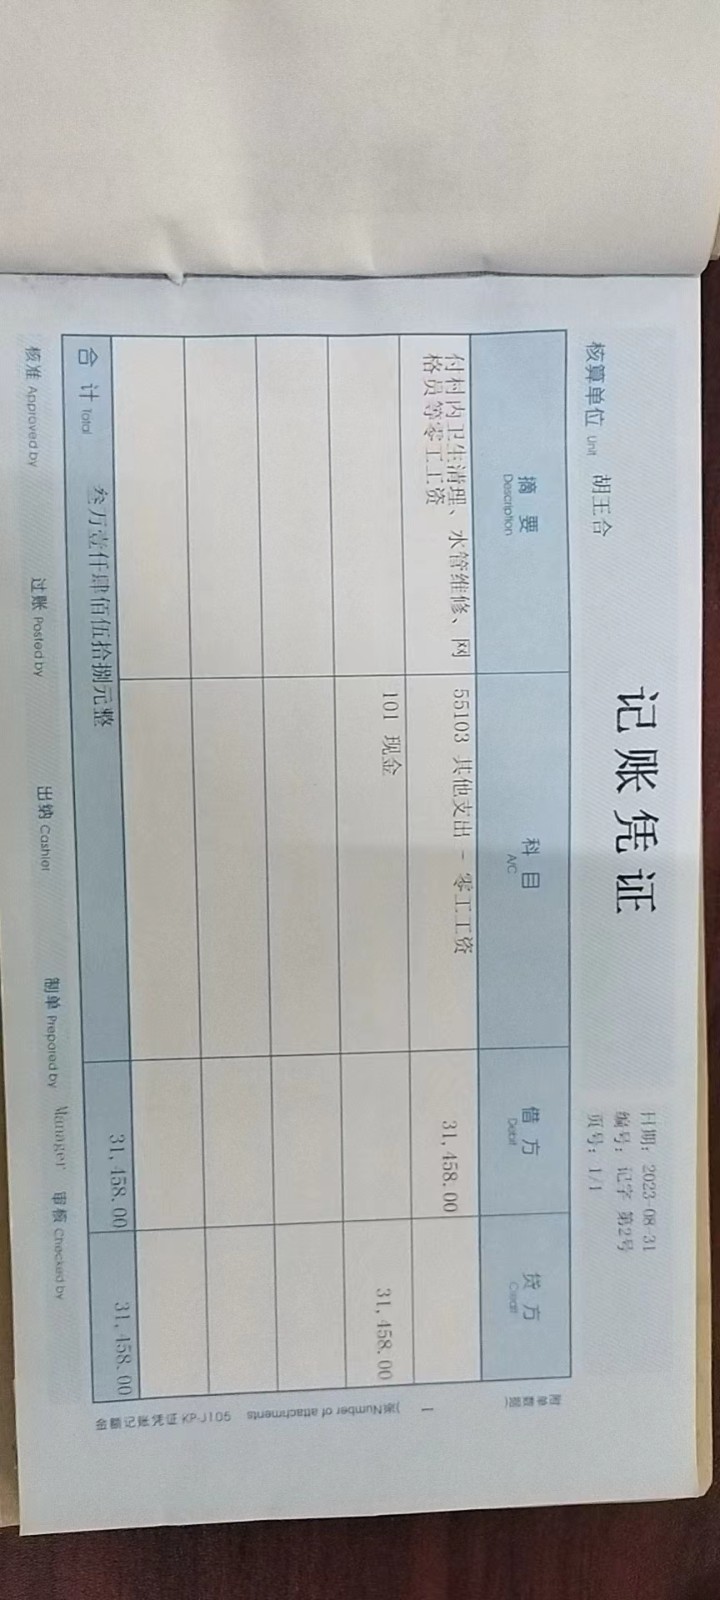 记账凭证
日期：2023-08-31
编号：记字 第2号
核算单位 Unit 胡王合
页号：1/1
摘 要 科 目 借 方 贷 方
Description A/C Debit Credit
付村内卫生清理、水管维修、网 55103 其他支出 - 零工工资 31,458.00
格员等零工工资
101 现金 31,458.00
合 计 Total 叁万壹仟肆佰伍拾捌元整 31,458.00 31,458.00
核准 Approved by 过账 Posted by 出纳 Cashier 制单 Prepared by Manager 审核 Checked by
附单数 1 张(Number of attachments
金额记账凭证 KP-J105